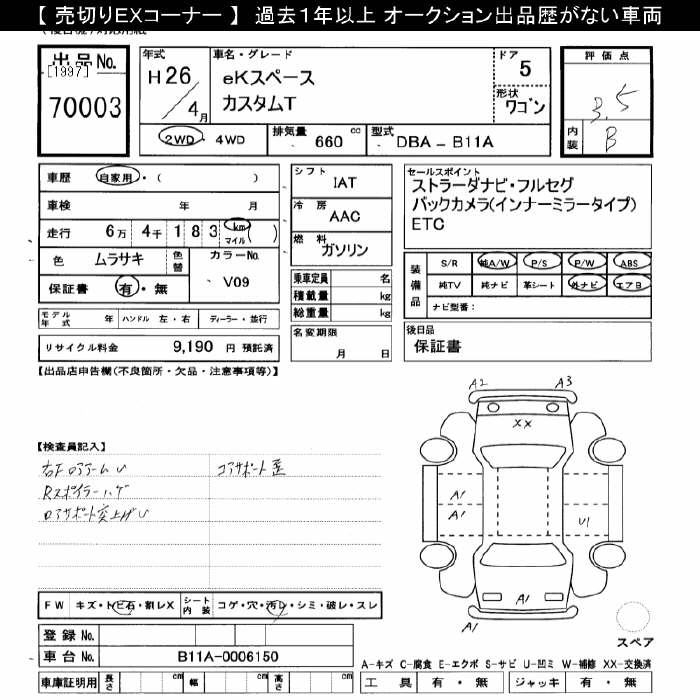 【 売切りEXコーナー 】 過去１年以上 オークション出品歴がない車両
出品No.
[1997]
70003
年式
H26／4月
車名・グレード
eKスペース
カスタムT
ドア
5
形状
ワゴン
評価点
3.5
内装
B
2WD・4WD
排気量 660 cc
型式 DBA－B11A
車歴 自家用・（ ）
車検 年 月
走行 6万 4千 1 8 3 km マイル（ ）
色 ムラサキ 色替 カラーNo.
V09
保証書 有・無
シフト
IAT
冷房
AAC
燃料
ガソリン
乗車定員 名
積載量 kg
総重量 kg
セールスポイント
ストラーダナビ・フルセグ
バックカメラ(インナーミラータイプ)
ETC
装備品
S/R 純A/W P/S P/W ABS
純TV 純ナビ 革シート 外ナビ エアB
ナビ型番：
モデル年式 年 ハンドル 左・右 ディーラー・並行
リサイクル料金 9,190 円 預託済
名変期限
月 日
後日品
保証書
【出品店申告欄(不良箇所・欠品・注意事項等)】
【検査員記入】
右FロアアームU
コアサポート歪
Rスポイラーハゲ
ロアサポート突上げU
A2 A3
XX
A1
A1
U1
A1
A1
スペア
FW キズ・トビ石・割レX シート内装 コゲ・穴・汚レ・シミ・破レ・スレ
登録No.
車台No. B11A-0006150
車庫証明用 長さ cm 幅 cm 高さ cm
A-キズ C-腐食 E-エクボ S-サビ U-凹ミ W-補修 XX-交換済
工具 有・無 ジャッキ 有・無